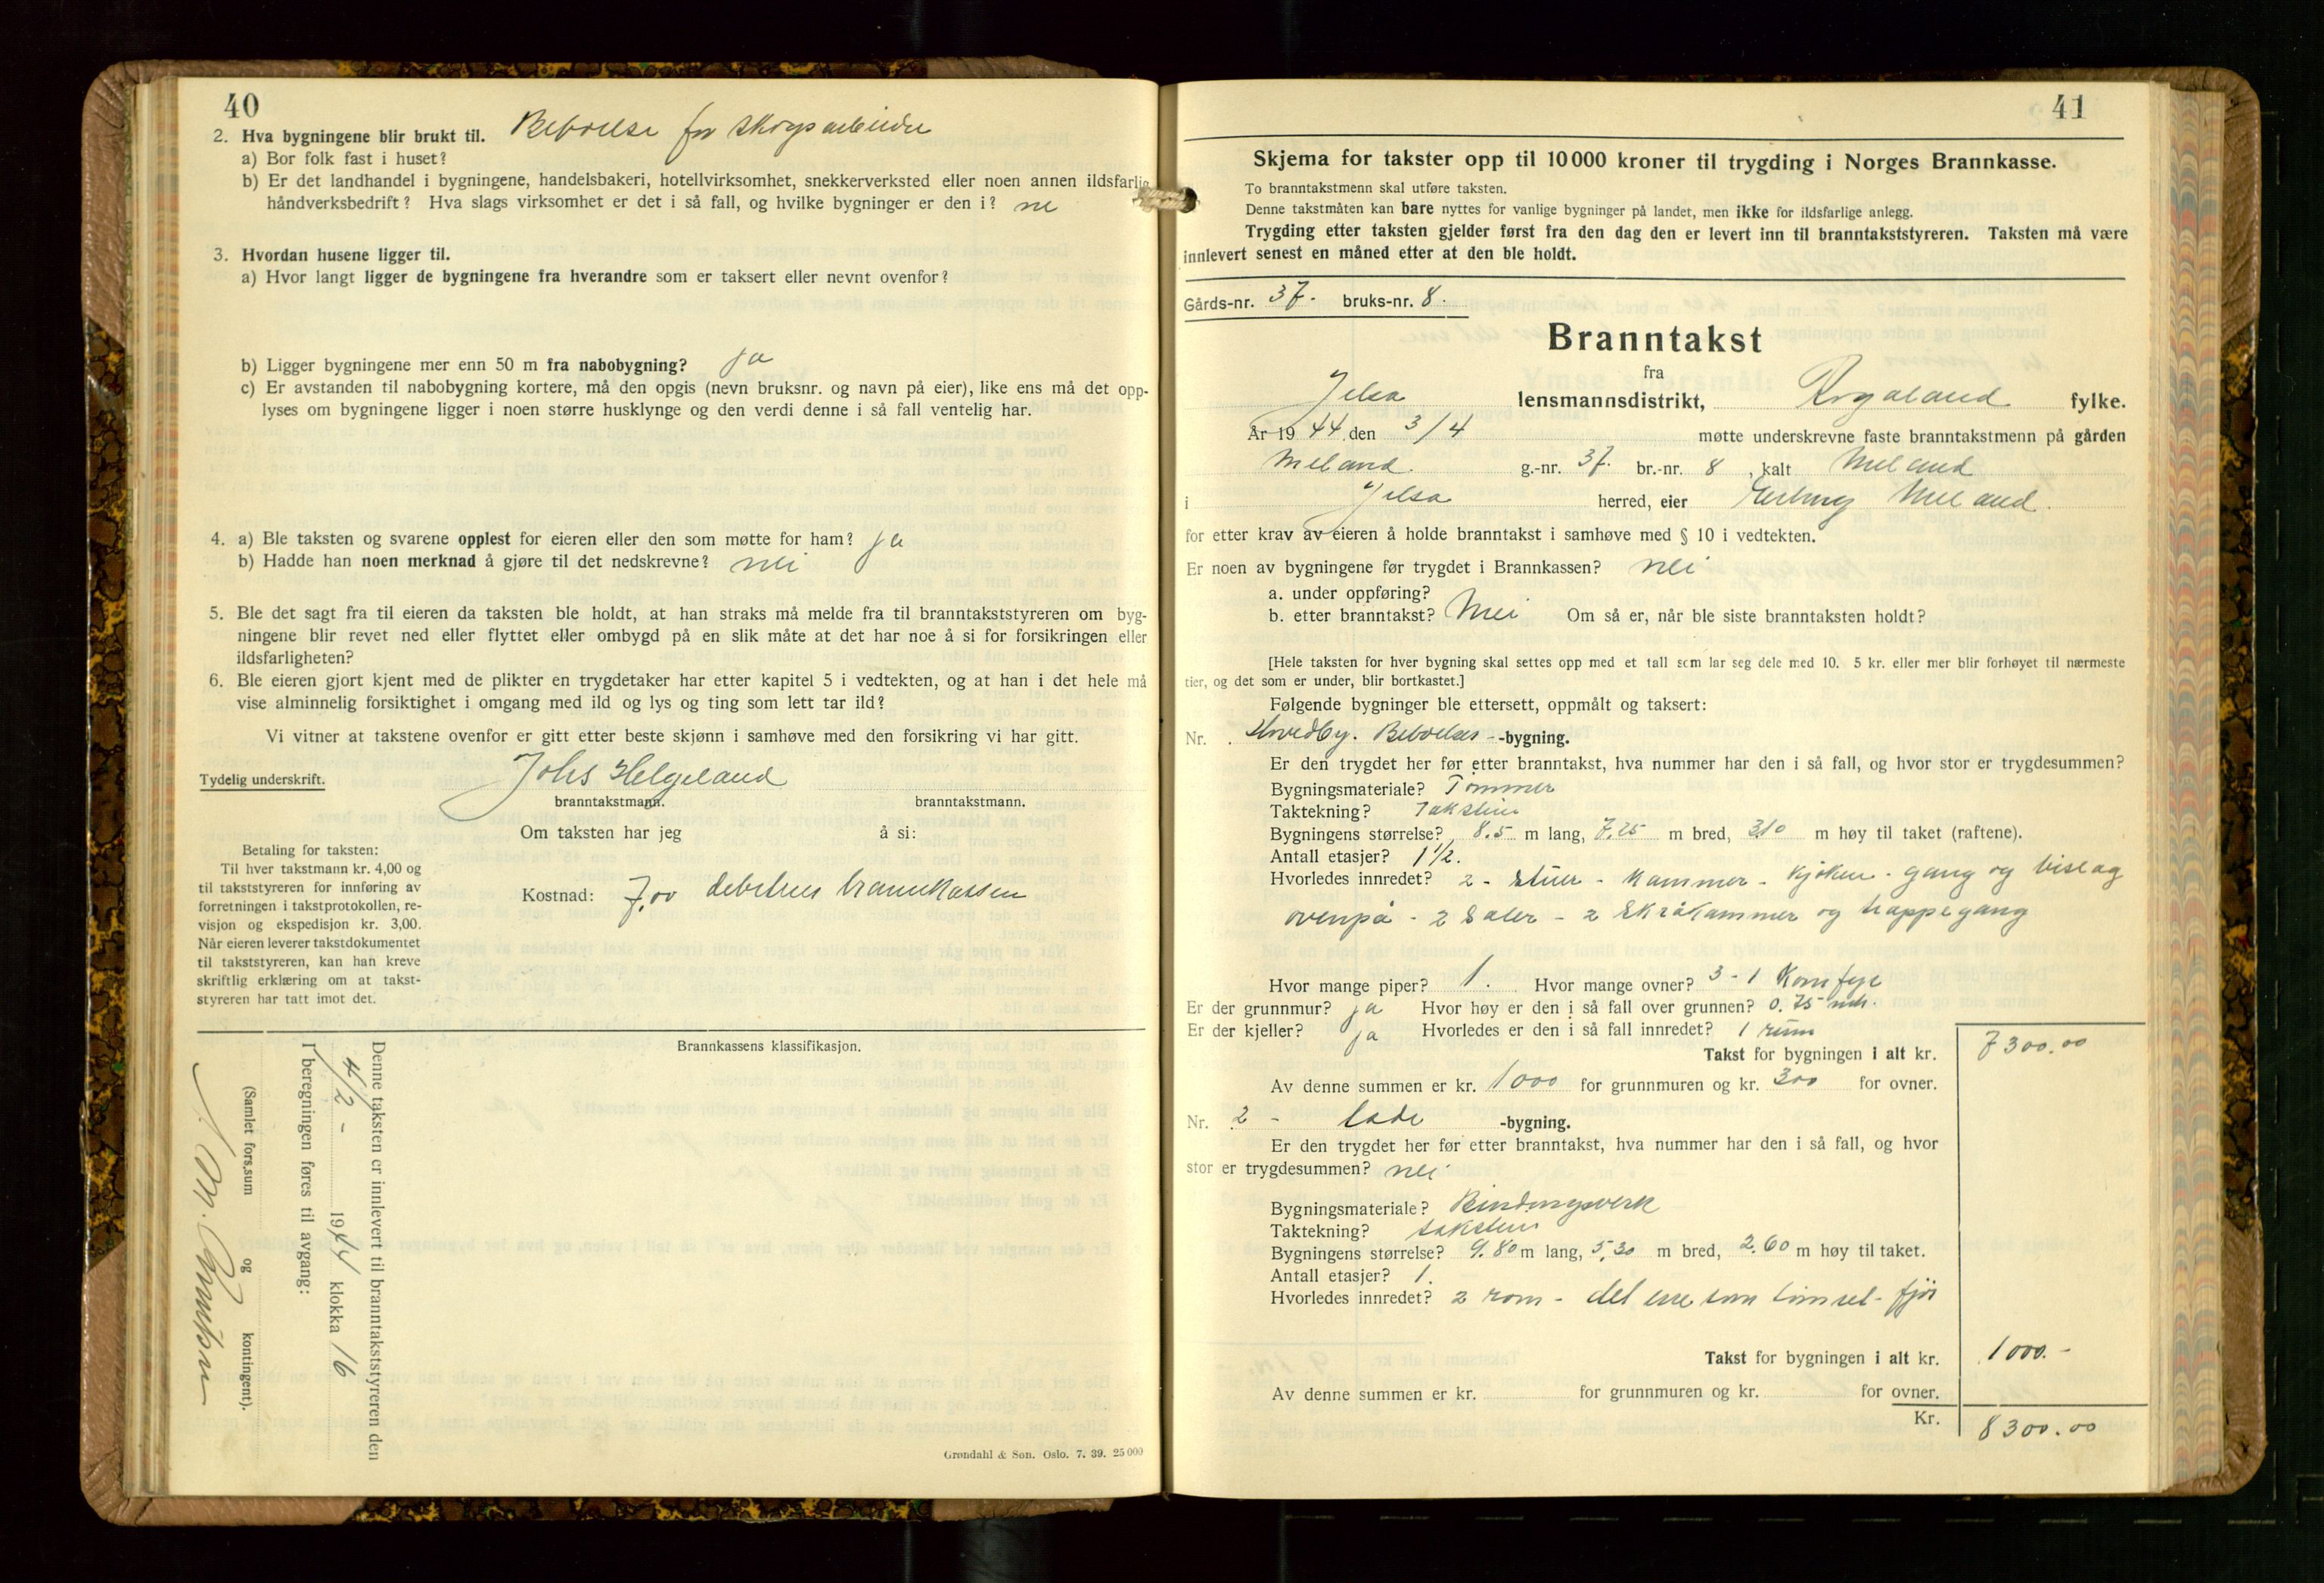 40
2. Hva bygningene blir brukt til. Beboelse for skogsarbeider
a) Bor folk fast i huset?
b) Er det landhandel i bygningene, handelsbakeri, hotellvirksomhet, snekkerverksted eller noen annen ildsfarlig
håndverksbedrift? Hva slags virksomhet er det i så fall, og hvilke bygninger er den i?
3. Hvordan husene ligger til.
a) Hvor langt ligger de bygningene fra hverandre som er taksert eller nevnt ovenfor?
b) Ligger bygningene mer enn 50 m fra nabobygning? ja
c) Er avstanden til nabobygning kortere, må den opgis (nevn bruksnr. og navn på eier), like ens må det opp-
lyses om bygningene ligger i noen større husklynge og den verdi denne i så fall ventelig har.
4. a) Ble taksten og svarene opplest for eieren eller den som møtte for ham? ja
b) Hadde han noen merknad å gjøre til det nedskrevne? nei
5. Ble det sagt fra til eieren da taksten ble holdt, at han straks må melde fra til branntakststyreren om byg-
ningene blir revet ned eller flyttet eller ombygd på en slik måte at det har noe å si for forsikringen eller
ildsfarligheten?
6. Ble eieren gjort kjent med de plikter en trygdetaker har etter kapitel 5 i vedtekten, og at han i det hele må
vise alminnelig forsiktighet i omgang med ild og lys og ting som lett tar ild?
Vi vitner at takstene ovenfor er gitt etter beste skjønn i samhøve med den forsikring vi har gitt.
Tydelig underskrift. Johs Helgeland
branntakstmann. branntakstmann.
Om taksten har jeg å si:
Betaling for taksten:
Til hver takstmann kr. 4,00 og
til takststyreren for innføring av
forretningen i takstprotokollen, re-
visjon og ekspedisjon kr. 3,00.
Når eieren leverer takstdokumentet
til takststyreren, kan han kreve
skriftlig erklæring om at takst-
styreren har tatt imot det.
Kostnad: 7,00 debiteres brannkassen
Brannkassens klassifikasjon.
Denne taksten er innlevert til branntakststyreren den
4/12 - 1944 klokka 16
I beregningen føres til avgang:
(Samlet fors.sum og kontingent).
Grøndahl & Søn. Oslo. 7. 39. 25 000
41
Skjema for takster opp til 10000 kroner til trygding i Norges Brannkasse.
To branntakstmenn skal utføre taksten.
Denne takstmåten kan bare nyttes for vanlige bygninger på landet, men ikke for ildsfarlige anlegg.
Trygding etter taksten gjelder først fra den dag den er levert inn til branntakststyreren. Taksten må være
innlevert senest en måned etter at den ble holdt.
Gårds-nr. 37. bruks-nr. 8.
Branntakst
fra
Jelsa lensmannsdistrikt, Rogaland fylke.
År 1944 den 3/4 møtte underskrevne faste branntakstmenn på gården
Meland. g.-nr. 37. br.-nr. 8, kalt Meland
i Jelsa herred, eier Meland.
for etter krav av eieren å holde branntakst i samhøve med § 10 i vedtekten.
Er noen av bygningene før trygdet i Brannkassen? nei
a. under oppføring?
b. etter branntakst? Nei Om så er, når ble siste branntaksten holdt?
[Hele taksten for hver bygning skal settes opp med et tall som lar seg dele med 10. 5 kr. eller mer blir forhøyet til nærmeste
tier, og det som er under, blir bortkastet.]
Følgende bygninger ble ettersett, oppmålt og taksert:
Nr. Hovedby. Beboelses-bygning.
Er den trygdet her før etter branntakst, hva nummer har den i så fall, og hvor stor er trygdesummen?
Bygningsmateriale? Tømmer
Taktekning? Takstein
Bygningens størrelse? 8.5 m lang, 7.25 m bred, 3.10 m høy til taket (raftene).
Antall etasjer? 1 1/2.
Hvorledes innredet? 2 - stuer - kammer - kjøken - gang og bislag
ovenpå - 2 saler - 2 skråkammer og trappegang
Hvor mange piper? 1. Hvor mange ovner? 3 - 1 Komfyr
Er der grunnmur? ja Hvor høy er den i så fall over grunnen? 0.75 mtr.
Er der kjeller? ja Hvorledes er den i så fall innredet? 1 rum
Takst for bygningen i alt kr. 7300.00
Av denne summen er kr. 1000 for grunnmuren og kr. 300 for ovner.
Nr. 2 - Løde -bygning.
Er den trygdet her før etter branntakst, hva nummer har den i så fall, og hvor
stor er trygdesummen? nei
Bygningsmateriale? Bindingsverk
Taktekning? takstein
Bygningens størrelse? 9.80 m lang, 5,30 m bred, 2.60 m høy til taket.
Antall etasjer? 1.
Hvorledes innredet? 2 rom - det ene som
Takst for bygningen i alt kr. 1000.-
Av denne summen er kr. for grunnmuren og kr. for ovner.
Kr. 8300.00